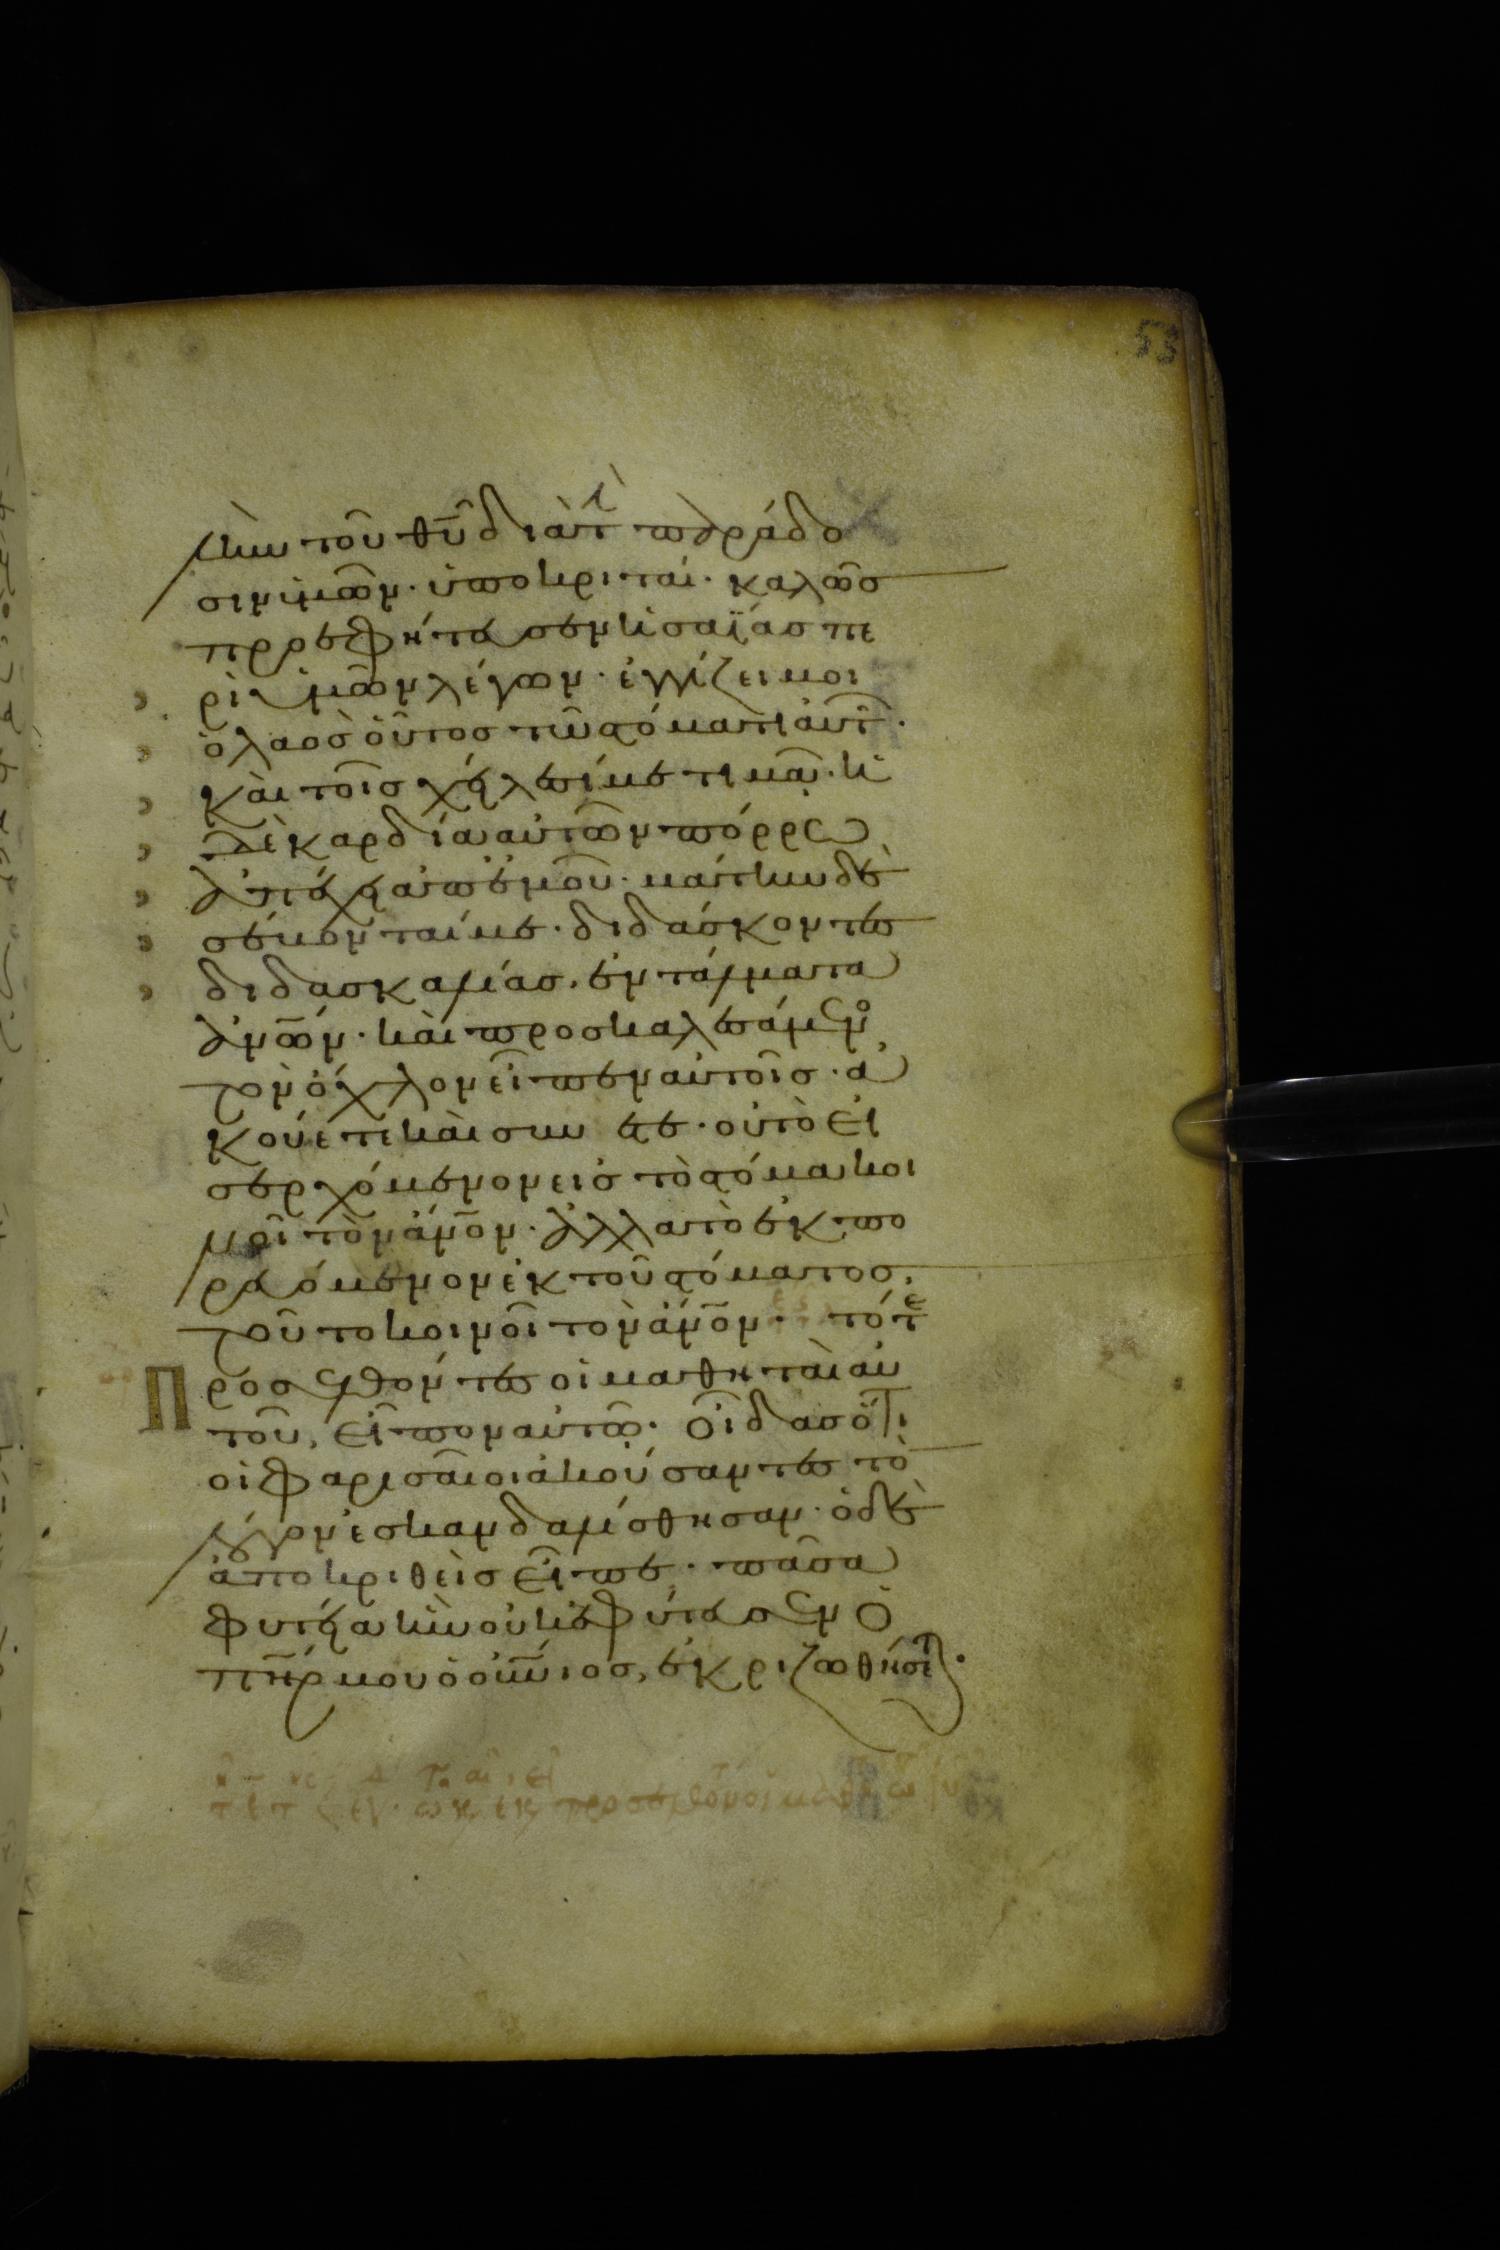 53
λὴν τοῦ θῡ διὰ τὴ παράδο
σιν ὑμῶν· ὑποκριταί· καλῶς
προεφήτευσεν ἡσαΐας πε
ρὶ ὑμῶν λέγων· ἐγγίζει μοι
ὁ λαὸς οὗτος τῶ στόματι αὐτ·
καὶ τοῖς χείλεσί με τιμᾶ· ἡ
δὲ καρδία αὐτῶν πόρρω
ἀπέχει ἀπ' ἐμοῦ· μάτην δὲ
σέβονταί με· διδάσκοντες
διδασκαλίας, ἐντάλματα
ἀν̅ων· καὶ προσκαλεσάμενο
τὸν ὄχλον εἶπεν αὐτοῖς· ἀ
κούετε καὶ συνίετε· οὐ τὸ εἰ
σερχόμενον εἰς τὸ στόμα κοι
νοῖ τὸν ἄν̅ον· ἀλλὰ τὸ ἐκπο
ρευόμενον ἐκ τοῦ στόματος,
τοῦτο κοινοῖ τὸν ἄν̅ον· τότε
Προσελθόντες οἱ μαθηταὶ αὐ
τοῦ, εἶπον αὐτῶ· οἶδας ὅτι
οἱ φαρισαῖοι ἀκούσαντες τὸ
λόγον ἐσκανδαλίσθησαν· ὁ δὲ
ἀποκριθεὶς εἶπε· πᾶσα
φυτεία ἣν οὐκ ἐφύτευσεν ὁ
πη̅ρ μου ὁ οὐ̅νιος, ἐκριζωθήσετ·